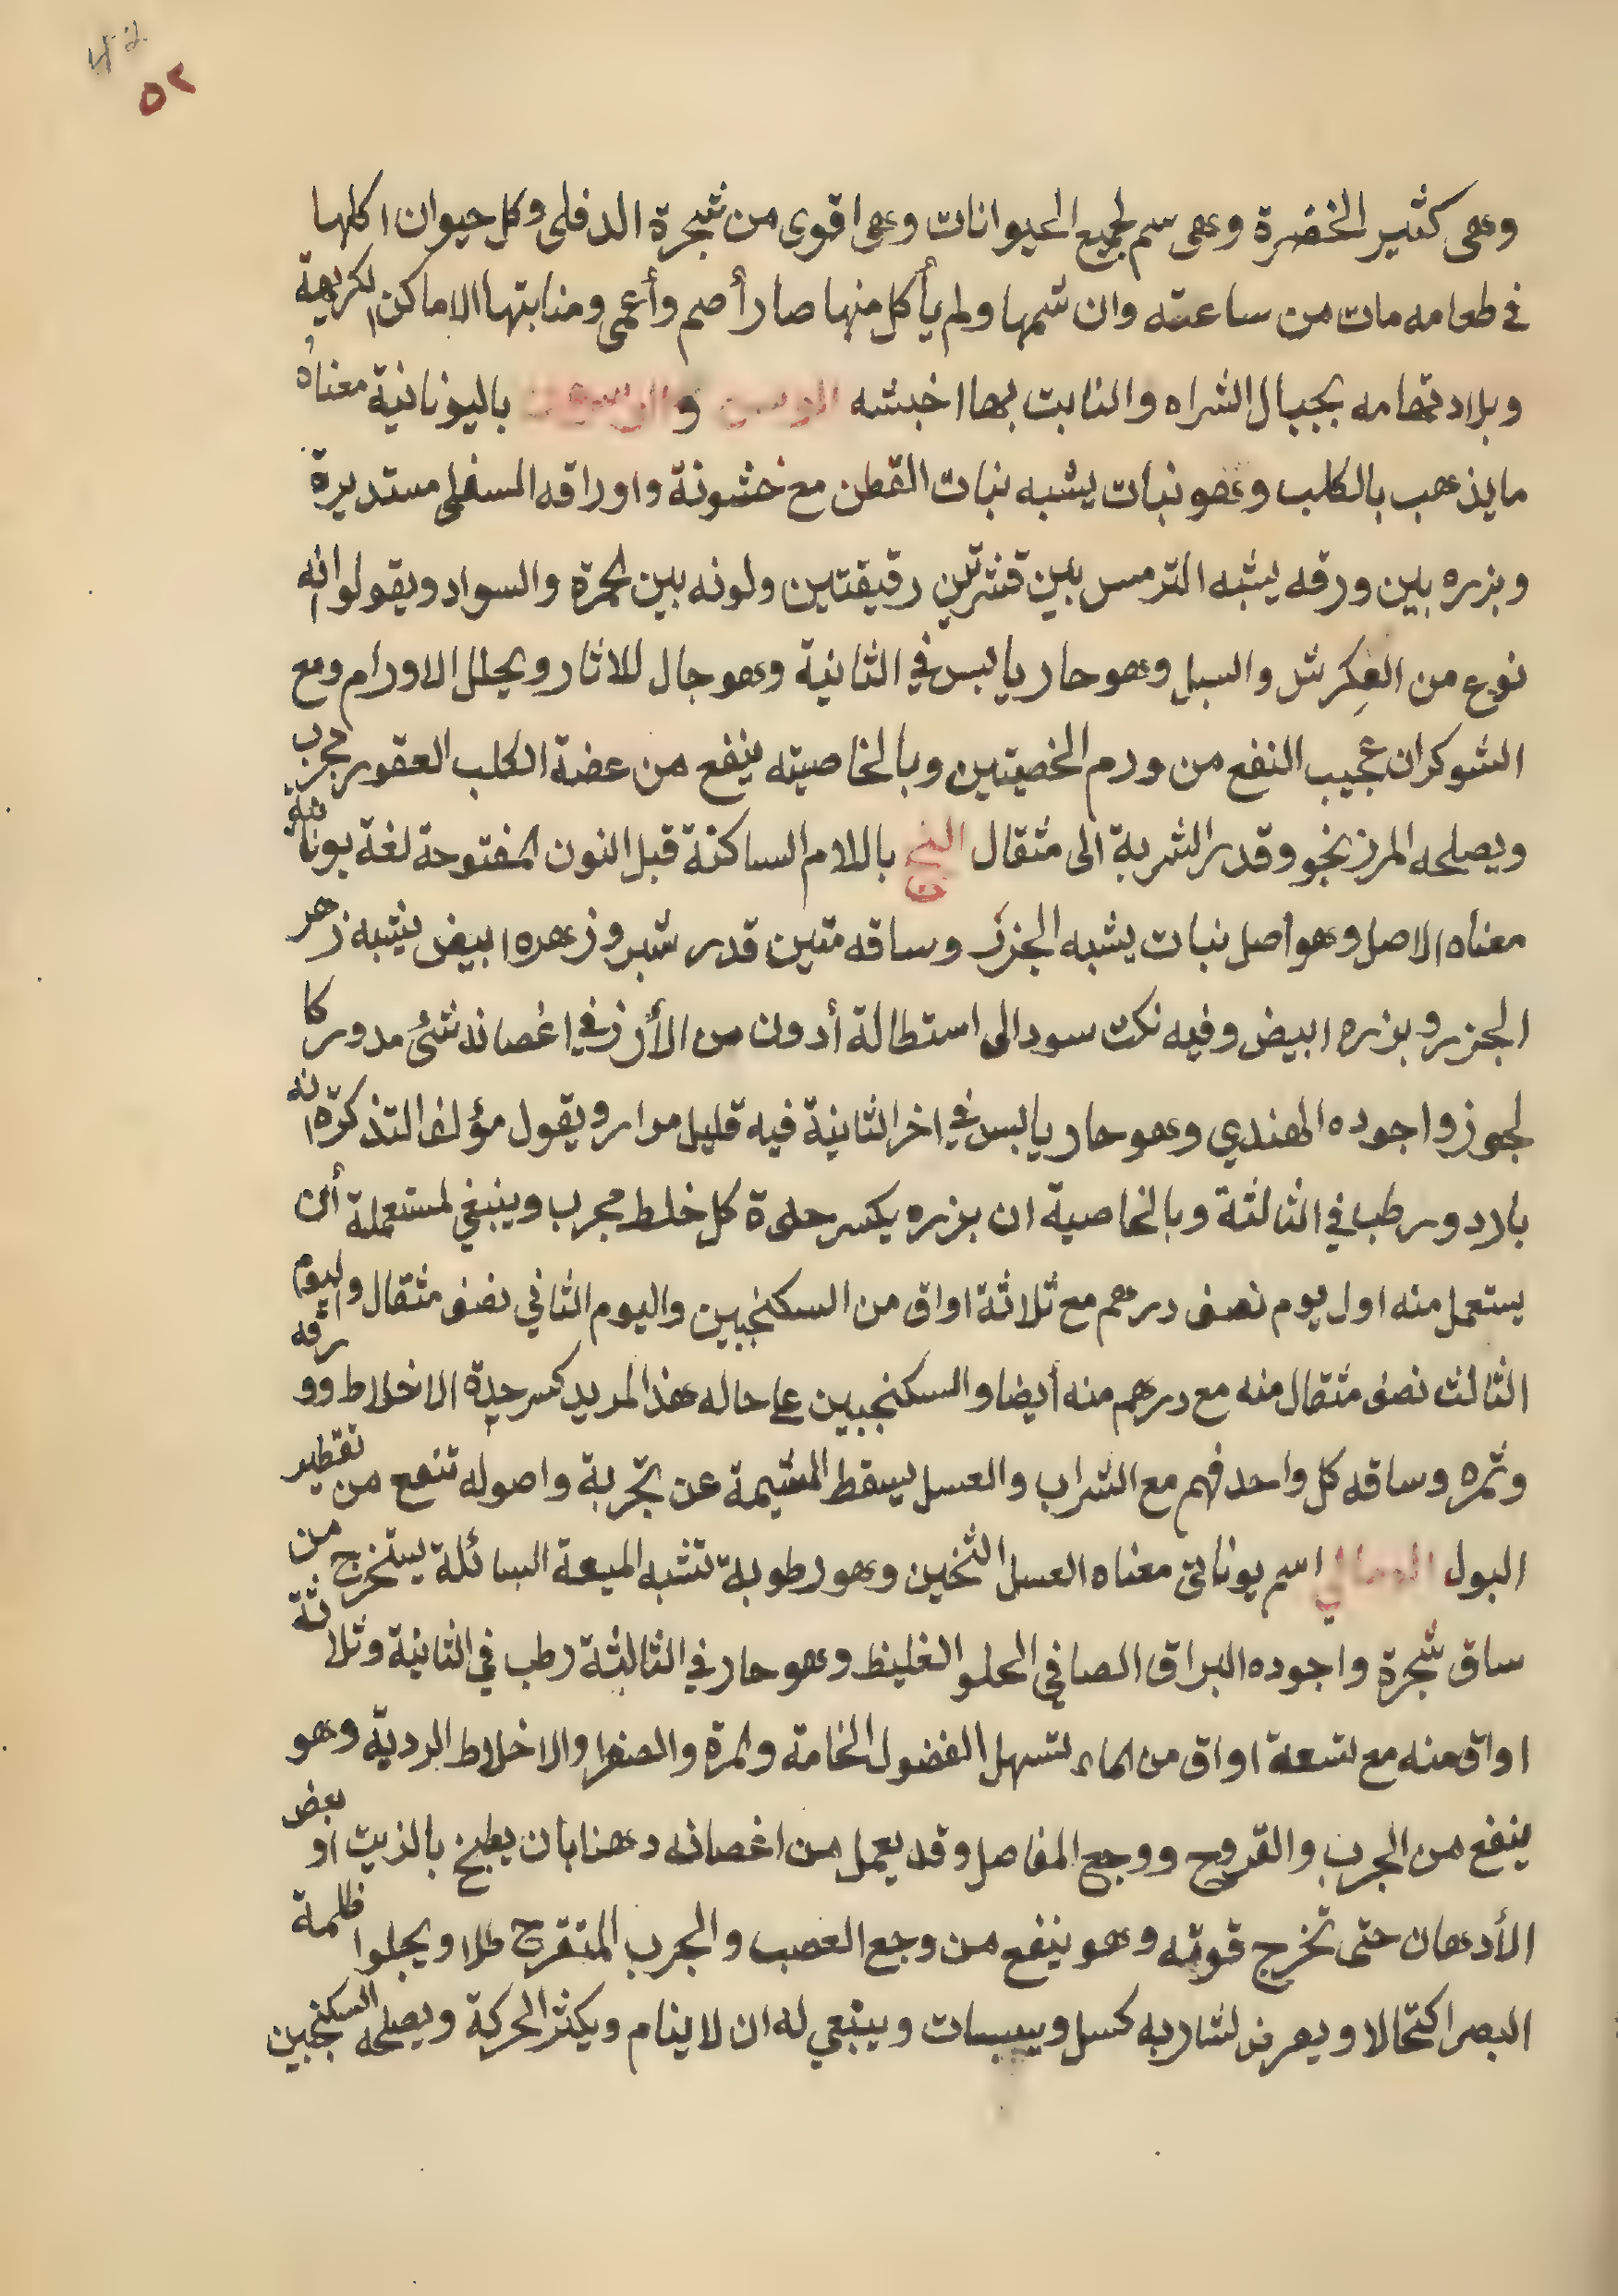 ٥٢
وهى كثير الخضرة وهى سم لجميع الحيوانات وهى اقوى من شجرة الدفلى وكل حيوان اكلها
فى طعامه مات من ساعته وان شمها ولم يأكل منها صار أصم وأعمى ومنابتها الاماكن الكريهة
وبلاد تهامه بجبال الشراه والنابت بها اخبثه و باليونانية معناه
ما يذهب بالكلب وهو نبات يشبه نبات القطن مع خشونة واوراقه السفلى مستديرة
وبزره بين ورقه يشبه الترمس بين قشرتين رقيقتين ولونه بين لحمرة والسواد ويقولوا انه
نوع من العكرش والسبل وهو حار يابس في الثانية وهو جال للاثار ويحلل الاورام ومع
الشوكران عجيب النفع من ورم الخصيتين وبالخاصيته ينفع من عضة الكلب العقور مجرب
ويصلحه المرزنجو وقدر الشربة الى مثقال بالام الساكنة قبل النون المفتوحة لغة يونانية
معناه الاصل وهو أصل نبات يشبه الجزر وساقه متين قدر شبر وزهره ابيض يشبه زهر
الجزر وبزره ابيض وفيه نكت سود الى استطالة أدون من الأرز في اغصانه شئ مدور كا
لجوز واجوده الهندي وهو حار يابس في اخر الثانية فيه قليل مرار ويقول مؤلف التذكرة انه
بارد ورطب في الثالثة وبالخاصية ان بزره يكسر حدة كل خلط مجرب وينبغي لمستعملة أن
يستعمل منه اول يوم نصف درهم مع ثلاثة اواق من السكنجبين واليوم الثاني نصف مثقال واليوم
الثالث نصف مثقال منه مع درهم منه أيضا والسكنجبين على حاله هذا لمريد كسر حدة الاخلاط وورقه
وثمره وساقه كل واحد فهم مع الشراب والعسل يسقط المشيمة عن تجربة واصوله تنفع من تقطير
البول اسم يونانى معناه العسل الثخين وهو رطوبة تشبه الميعة السائلة يستخرج من
ساق شجرة واجوده البراق الصافى الحلو الغليظ وهو حار في الثالثة رطب في الثانية وثلاثة
اواق منه مع تسعة اواق من الماء تسهل الفضول الخامة ولمرة والصفرا والاخلاط الردية وهو
ينفع من الجرب والقروح ووجع المفاصل وقد يعمل من اغصانه دهنا بان يطبخ بالزيت او بعض
الأدهان حتى تخرج قوته وهو ينفع من وجع العصب والجرب المتقرح طلا ويجلوا ظلمة
البصر اكتحالا ويعرض لشاربه كسل وسبات وينبغي له ان لا ينام ويكثر الحركة ويصلحه السكنجبين